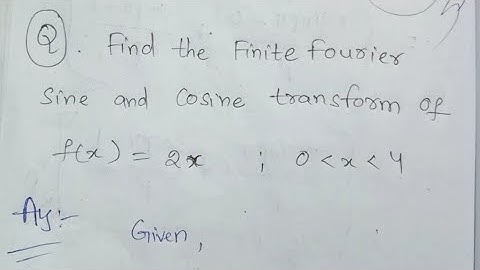 Q. Find the Finite Fourier
Sine and Cosine transform of
f(x) = 2x ; 0 < x < 4
Ay:-
Given,